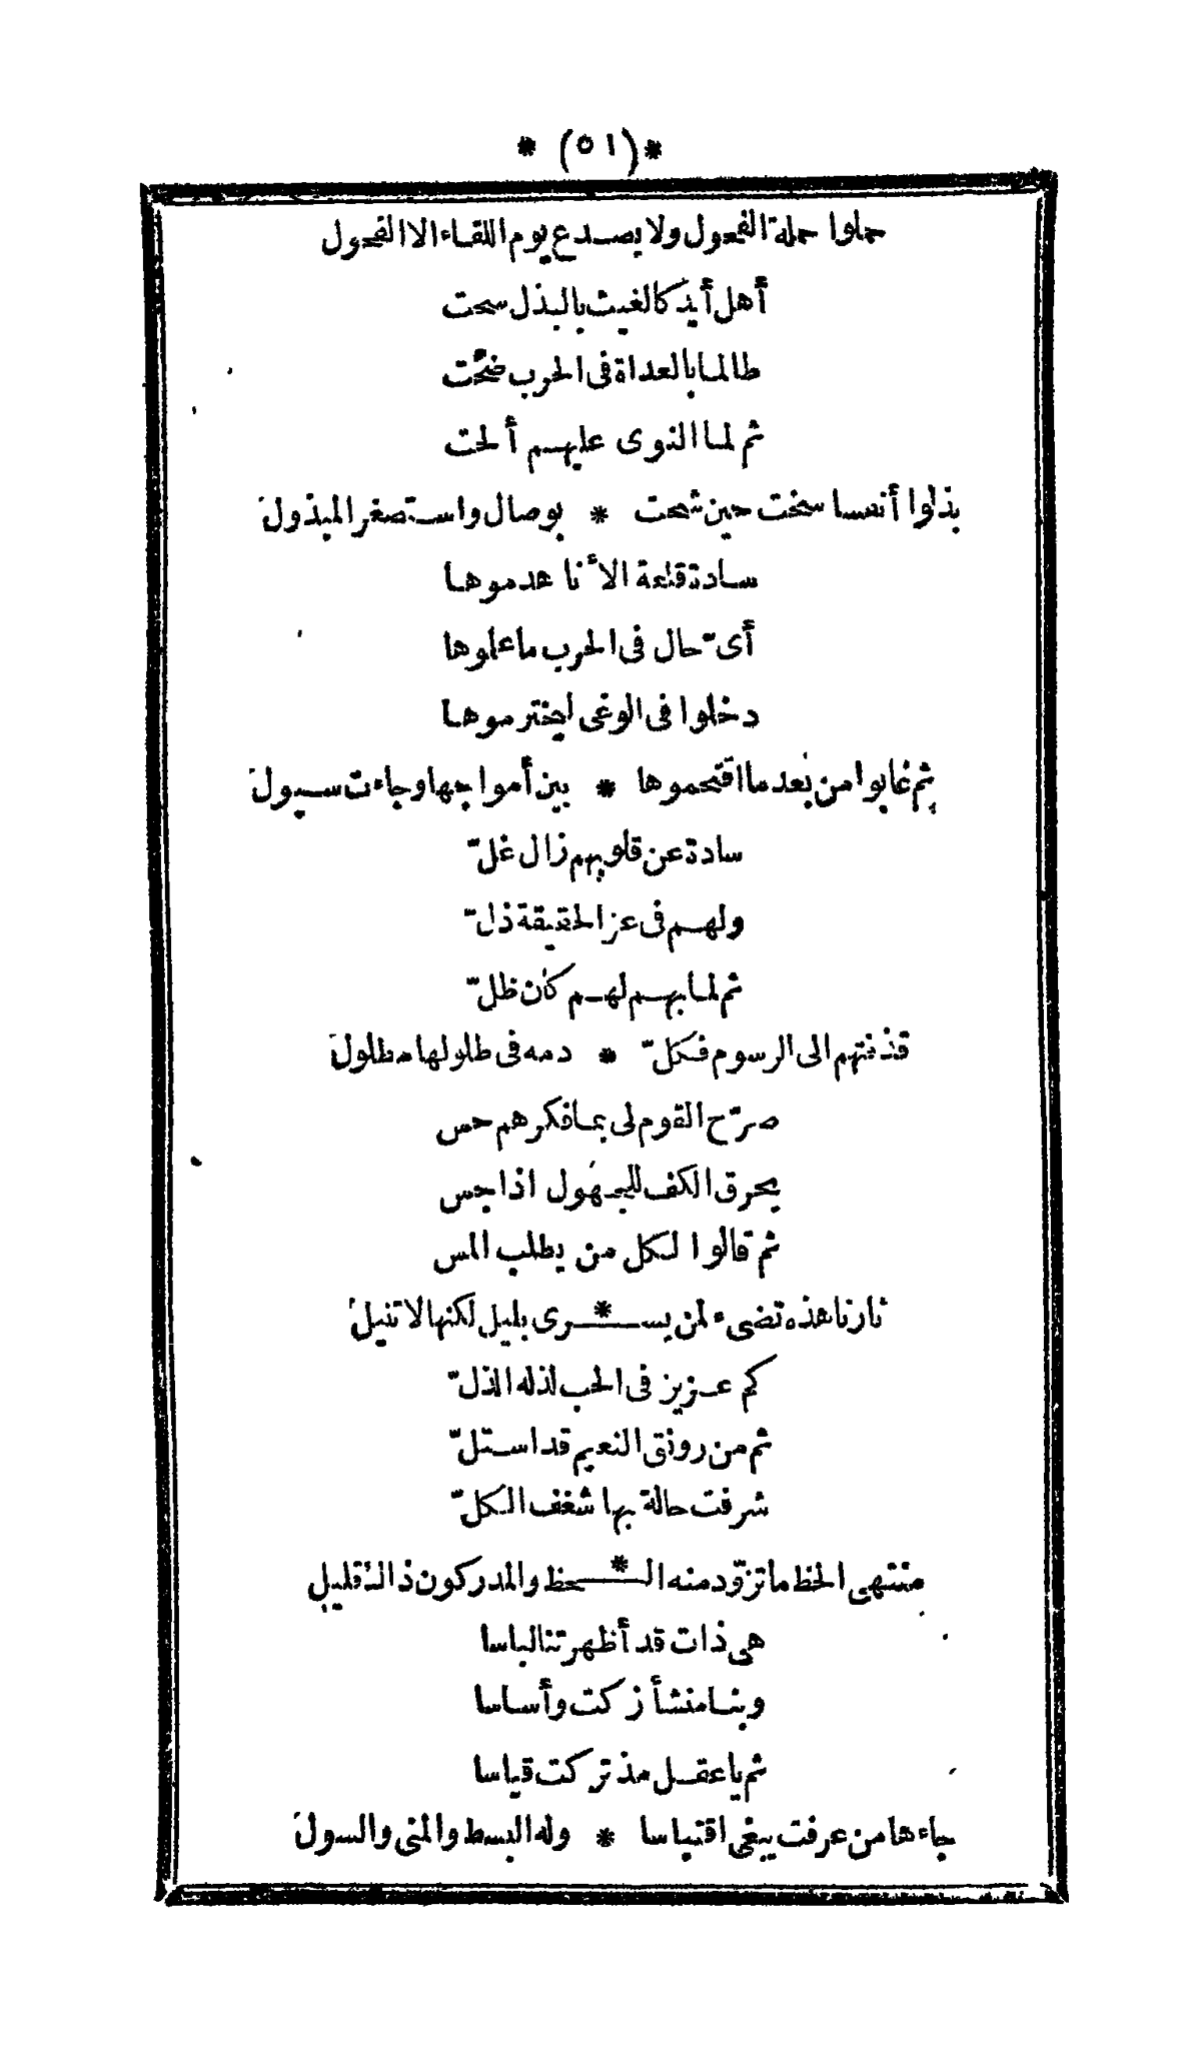 *(٥١)*
حملوا حملة الفحول ولا يصدع يوم اللقاء الا الفحول
أهل أيد كالغيث بالبذل سحت
طالما بالعداة فى الحرب ضحّت
ثم لما النوى عليهم ألحت
بذلوا أنفسا سخت حين شحت * بوصال واستصغر المبذول
سادة قلعة الأنا هدموها
أىّ حال فى الحرب ما علوها
دخلوا فى الوغى ليخترموها
ثم غابوا من بعد ما اقتحموها * بين أمواجها وجاءت سيول
سادة عن قلوبهم زال غلّ
ولهم فى عز الحقيقة ذلّ
ثم لما بهم لهم كان ظلّ
قذفتهم الى الرسوم فكلّ * دمه فى طلولها مطلول
صرّح القوم لى بما فكرهم حس
يحرق الكف للجهول اذا جس
ثم قالوا لكل من يطلب المس
نارنا هذه تضىء لمن يسـ * ـرى بليل لكنها لا تنيل
كم عزيز فى الحب لذله الذلّ
ثم من رونق النعيم قد استلّ
شرفت حالة بها شغف الكلّ
منتهى الحظ ما تزوّد منه الـ * ـلحظ والمدركون ذاك قليل
هى ذات قد أظهرتنا لباسا
وبنا منشأ زكت وأساسا
ثم يا عقل مذ تركت قياسا
جاءها من عرفت يبغى اقتباسا * وله البسط والمنى والسول